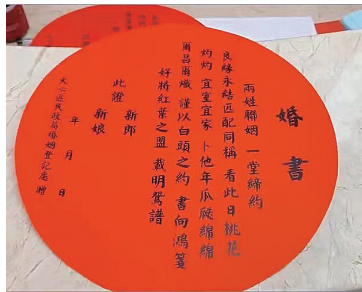 婚書
兩姓聯姻 一堂締約
良緣永結 匹配同稱 看此日桃花
灼灼 宜室宜家 卜他年瓜瓞綿綿
爾昌爾熾 謹以白頭之約 書向鴻箋
好將紅葉之盟 載明鴛譜
此證
新郎
新娘
年 月 日
民政局婚姻登記處 贈